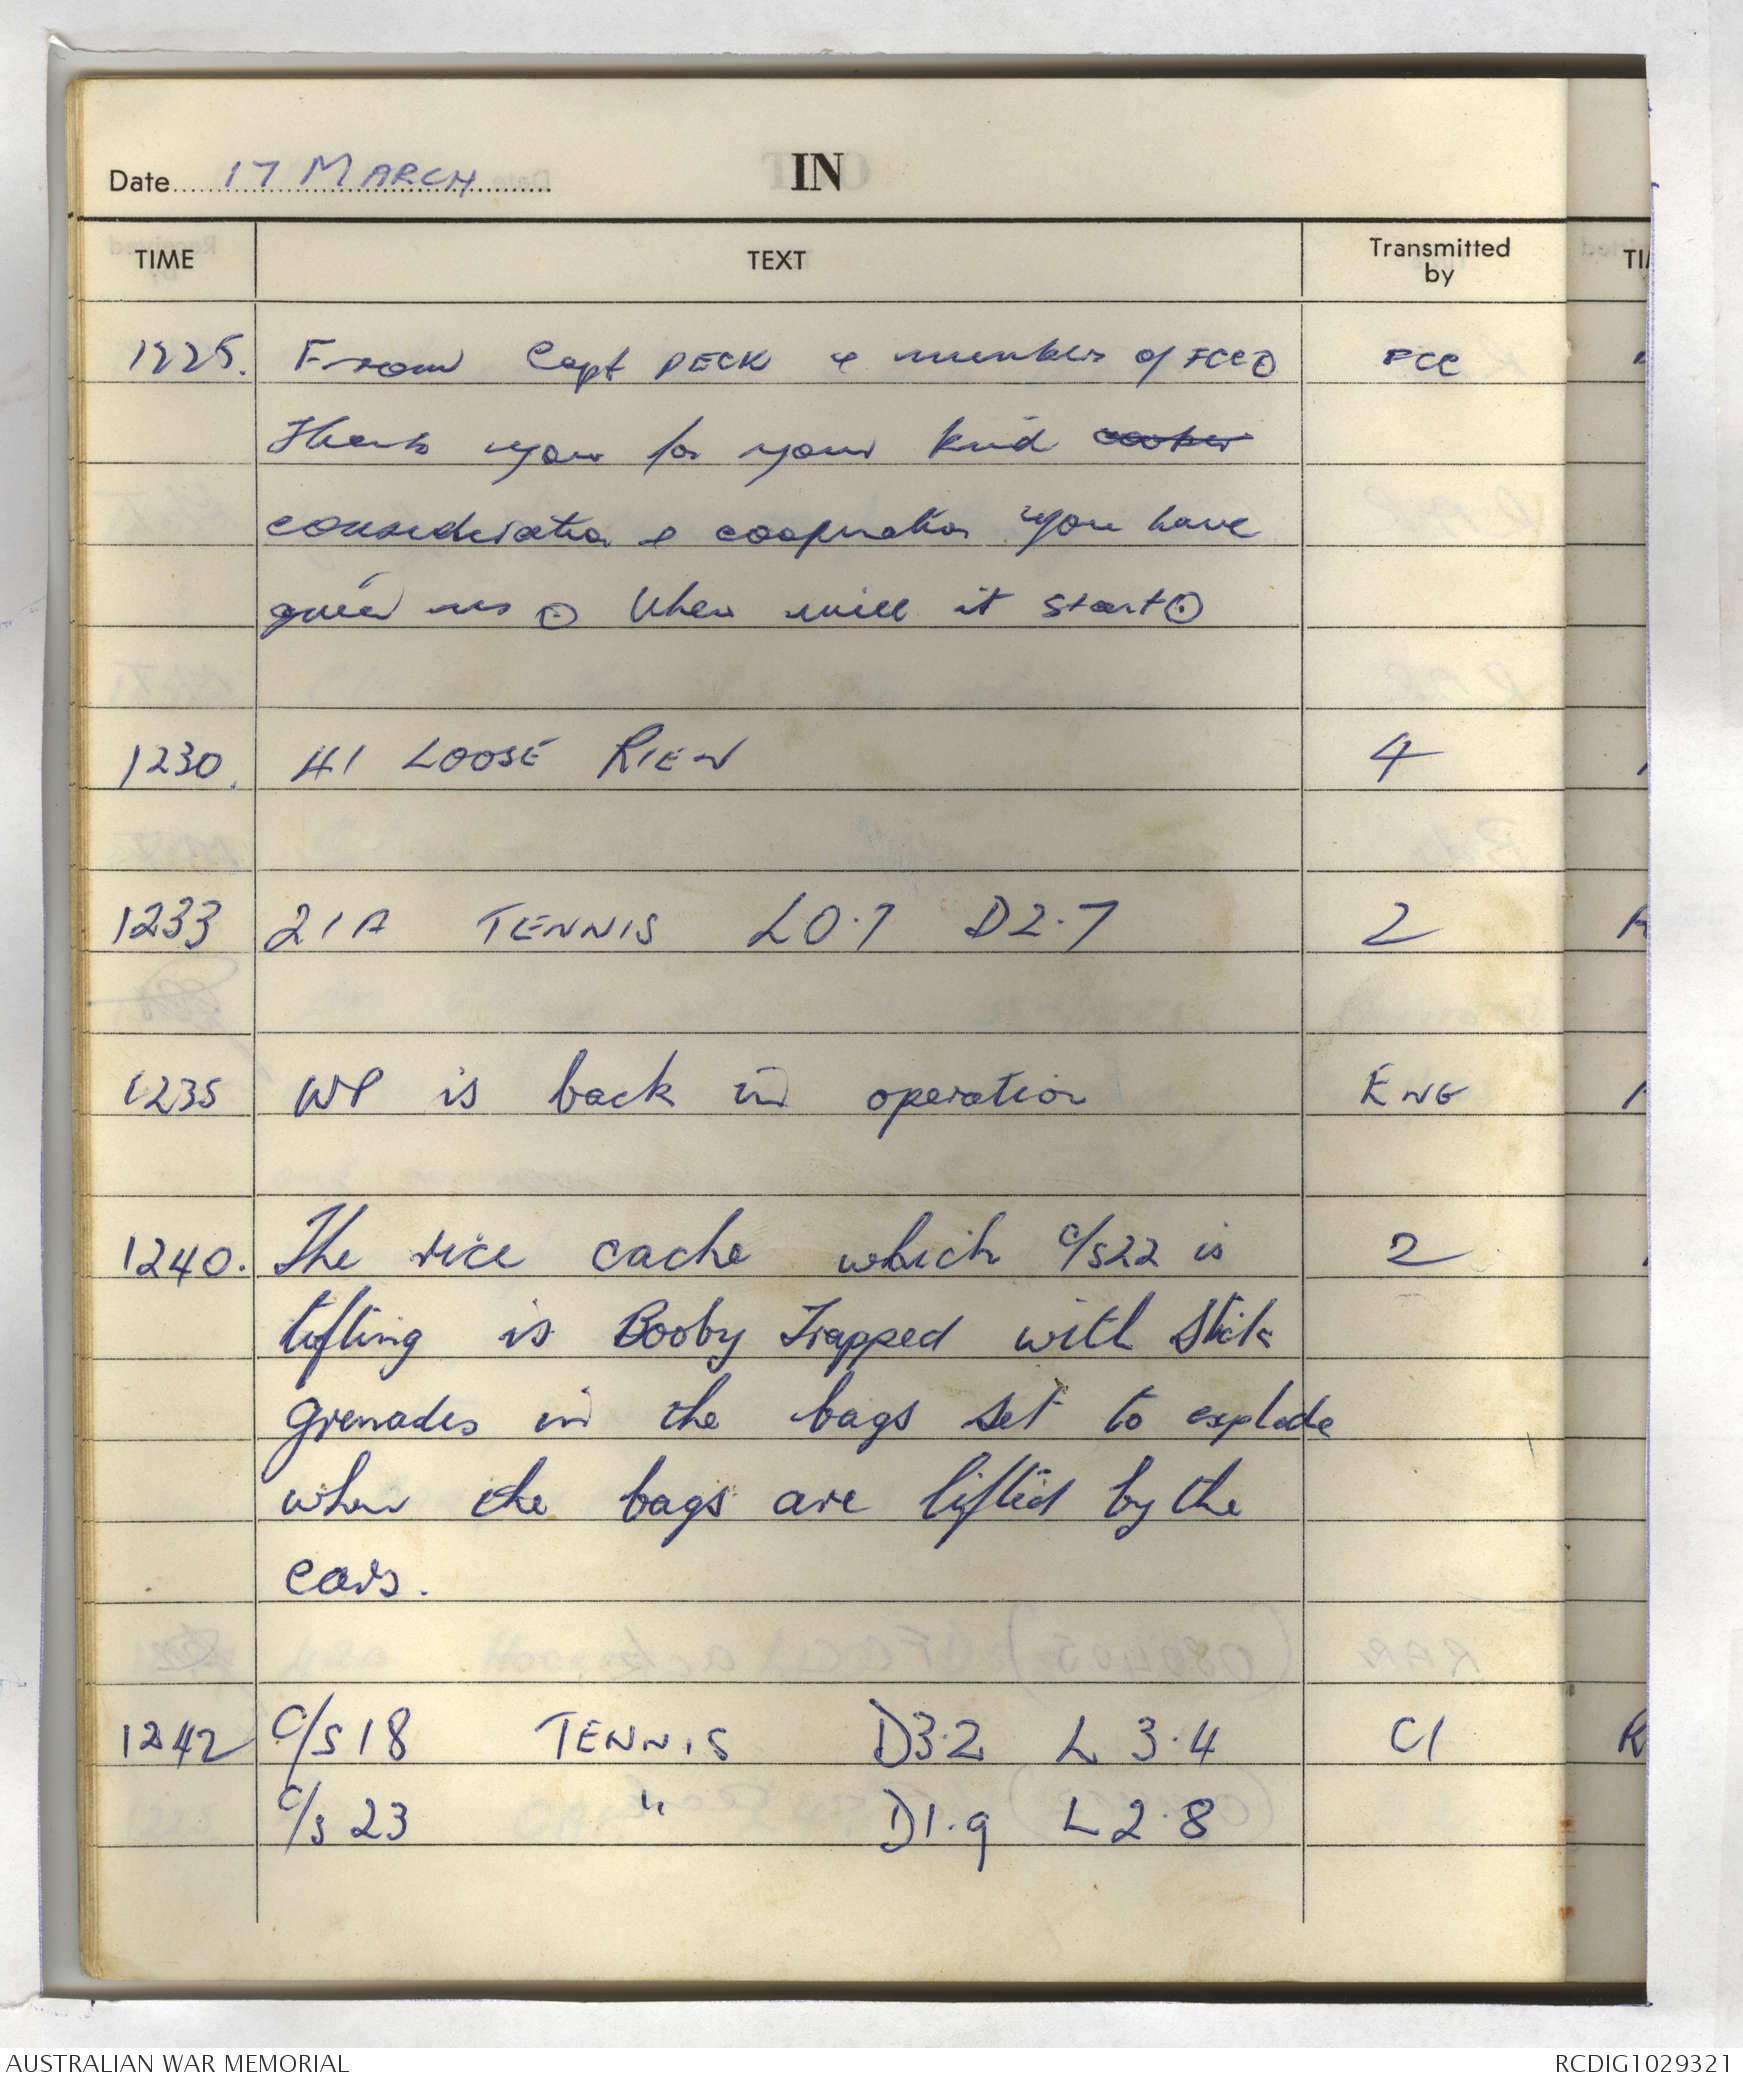 Date 17 MARCH
IN
TIME TEXT Transmitted by
1225. From Capt PECK & members of FCC⊙ FCC
Thank you for your kind
consideration & cooperation you have
given us ⊙ When will it start⊙
1230. 41 LOOSE RIEN 4
1233 21A TENNIS L0.7 D2.7 2
1235 WP is back in operation ENG
1240. The rice cache which c/s22 is 2
lifting is Booby Trapped with Stick
grenades in the bags set to explode
when the bags are lifted by the
cavs.
1242 C/S 18 TENNIS D3.2 L 3.4 C1
C/S 23 " D1.9 L2.8
AUSTRALIAN WAR MEMORIAL
RCDIG1029321